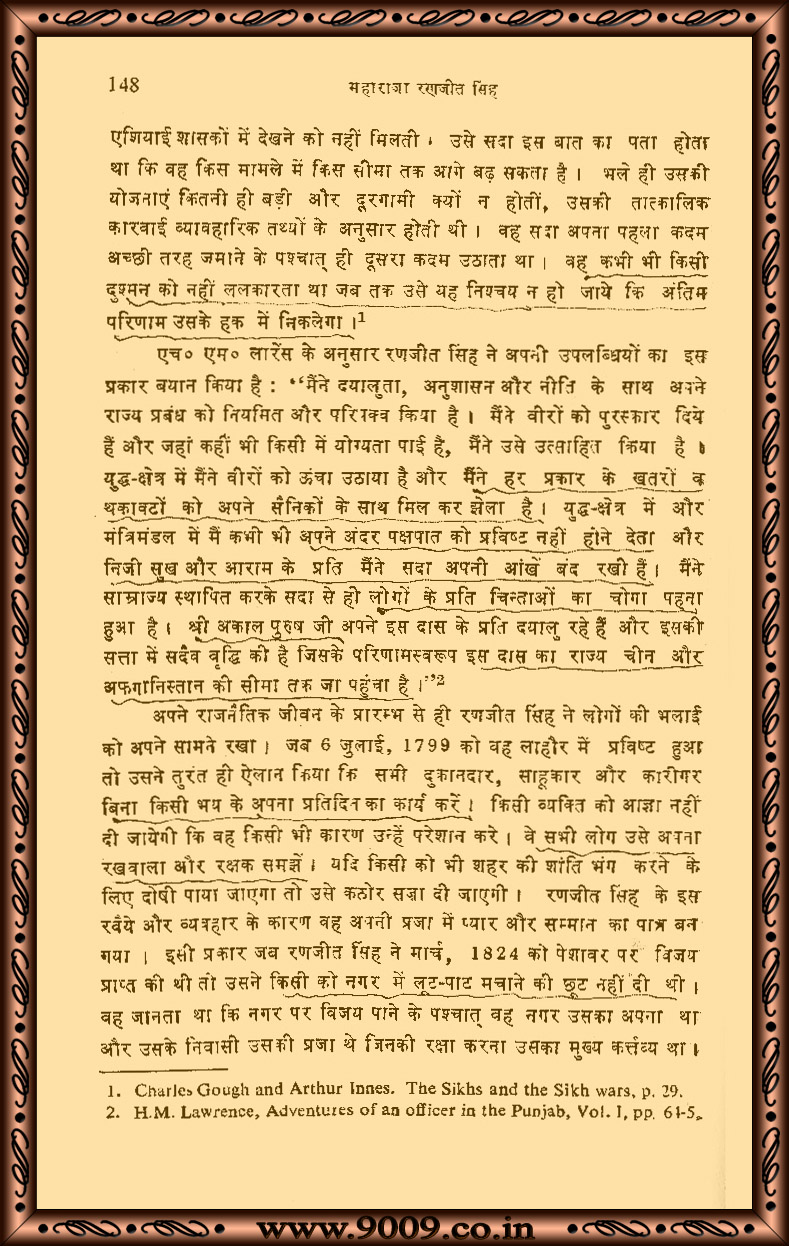 148 महाराजा रणजीत सिंह
एशियाई शासकों में देखने को नहीं मिलती । उसे सदा इस बात का पता होता
था कि वह किस मामले में किस सीमा तक आगे बढ़ सकता है । भले ही उसकी
योजनाएं कितनी ही बड़ी और दूरगामी क्यों न होतीं, उसकी तात्कालिक
कारवाई व्यावहारिक तथ्यों के अनुसार होती थी । वह सदा अपना पहला कदम
अच्छी तरह जमाने के पश्चात् ही दूसरा कदम उठाता था । वह कभी भी किसी
दुश्मन को नहीं ललकारता था जब तक उसे यह निश्चय न हो जाये कि अंतिम
परिणाम उसके हक में निकलेगा ।1
एच० एम० लारेंस के अनुसार रणजीत सिंह ने अपनी उपलब्धियों का इस
प्रकार बयान किया है : “मैंने दयालुता, अनुशासन और नीति के साथ अपने
राज्य प्रबंध को नियमित और परिपक्व किया है । मैंने वीरों को पुरस्कार दिये
हैं और जहां कहीं भी किसी में योग्यता पाई है, मैंने उसे उत्साहित किया है ।
युद्ध-क्षेत्र में मैंने वीरों को ऊंचा उठाया है और मैंने हर प्रकार के खतरों व
थकावटों को अपने सैनिकों के साथ मिल कर झेला है । युद्ध-क्षेत्र में और
मंत्रिमंडल में मैं कभी भी अपने अंदर पक्षपात को प्रविष्ट नहीं होने देता और
निजी सुख और आराम के प्रति मैंने सदा अपनी आंखें बंद रखी हैं । मैंने
साम्राज्य स्थापित करके सदा से ही लोगों के प्रति चिन्ताओं का चोगा पहना
हुआ है । श्री अकाल पुरुष जी अपने इस दास के प्रति दयालु रहे हैं और इसकी
सत्ता में सदैव वृद्धि की है जिसके परिणामस्वरूप इस दास का राज्य चीन और
अफगानिस्तान की सीमा तक जा पहुंचा है ।”2
अपने राजनैतिक जीवन के प्रारम्भ से ही रणजीत सिंह ने लोगों की भलाई
को अपने सामने रखा । जब 6 जुलाई, 1799 को वह लाहौर में प्रविष्ट हुआ
तो उसने तुरंत ही ऐलान किया कि सभी दुकानदार, साहूकार और कारीगर
बिना किसी भय के अपना प्रतिदिन का कार्य करें । किसी व्यक्ति को आज्ञा नहीं
दी जायेगी कि वह किसी भी कारण उन्हें परेशान करे । वे सभी लोग उसे अपना
रखवाला और रक्षक समझें । यदि किसी को भी शहर की शांति भंग करने के
लिए दोषी पाया जाएगा तो उसे कठोर सज़ा दी जाएगी । रणजीत सिंह के इस
रवैये और व्यवहार के कारण वह अपनी प्रजा में प्यार और सम्मान का पात्र बन
गया । इसी प्रकार जब रणजीत सिंह ने मार्च, 1824 को पेशावर पर विजय
प्राप्त की थी तो उसने किसी को नगर में लूट-पाट मचाने की छूट नहीं दी थी ।
वह जानता था कि नगर पर विजय पाने के पश्चात् वह नगर उसका अपना था
और उसके निवासी उसकी प्रजा थे जिनकी रक्षा करना उसका मुख्य कर्त्तव्य था ।
1. Charles Gough and Arthur Innes. The Sikhs and the Sikh wars, p. 29.
2. H.M. Lawrence, Adventures of an officer in the Punjab, Vol. I, pp. 64-5.
www.9009.co.in